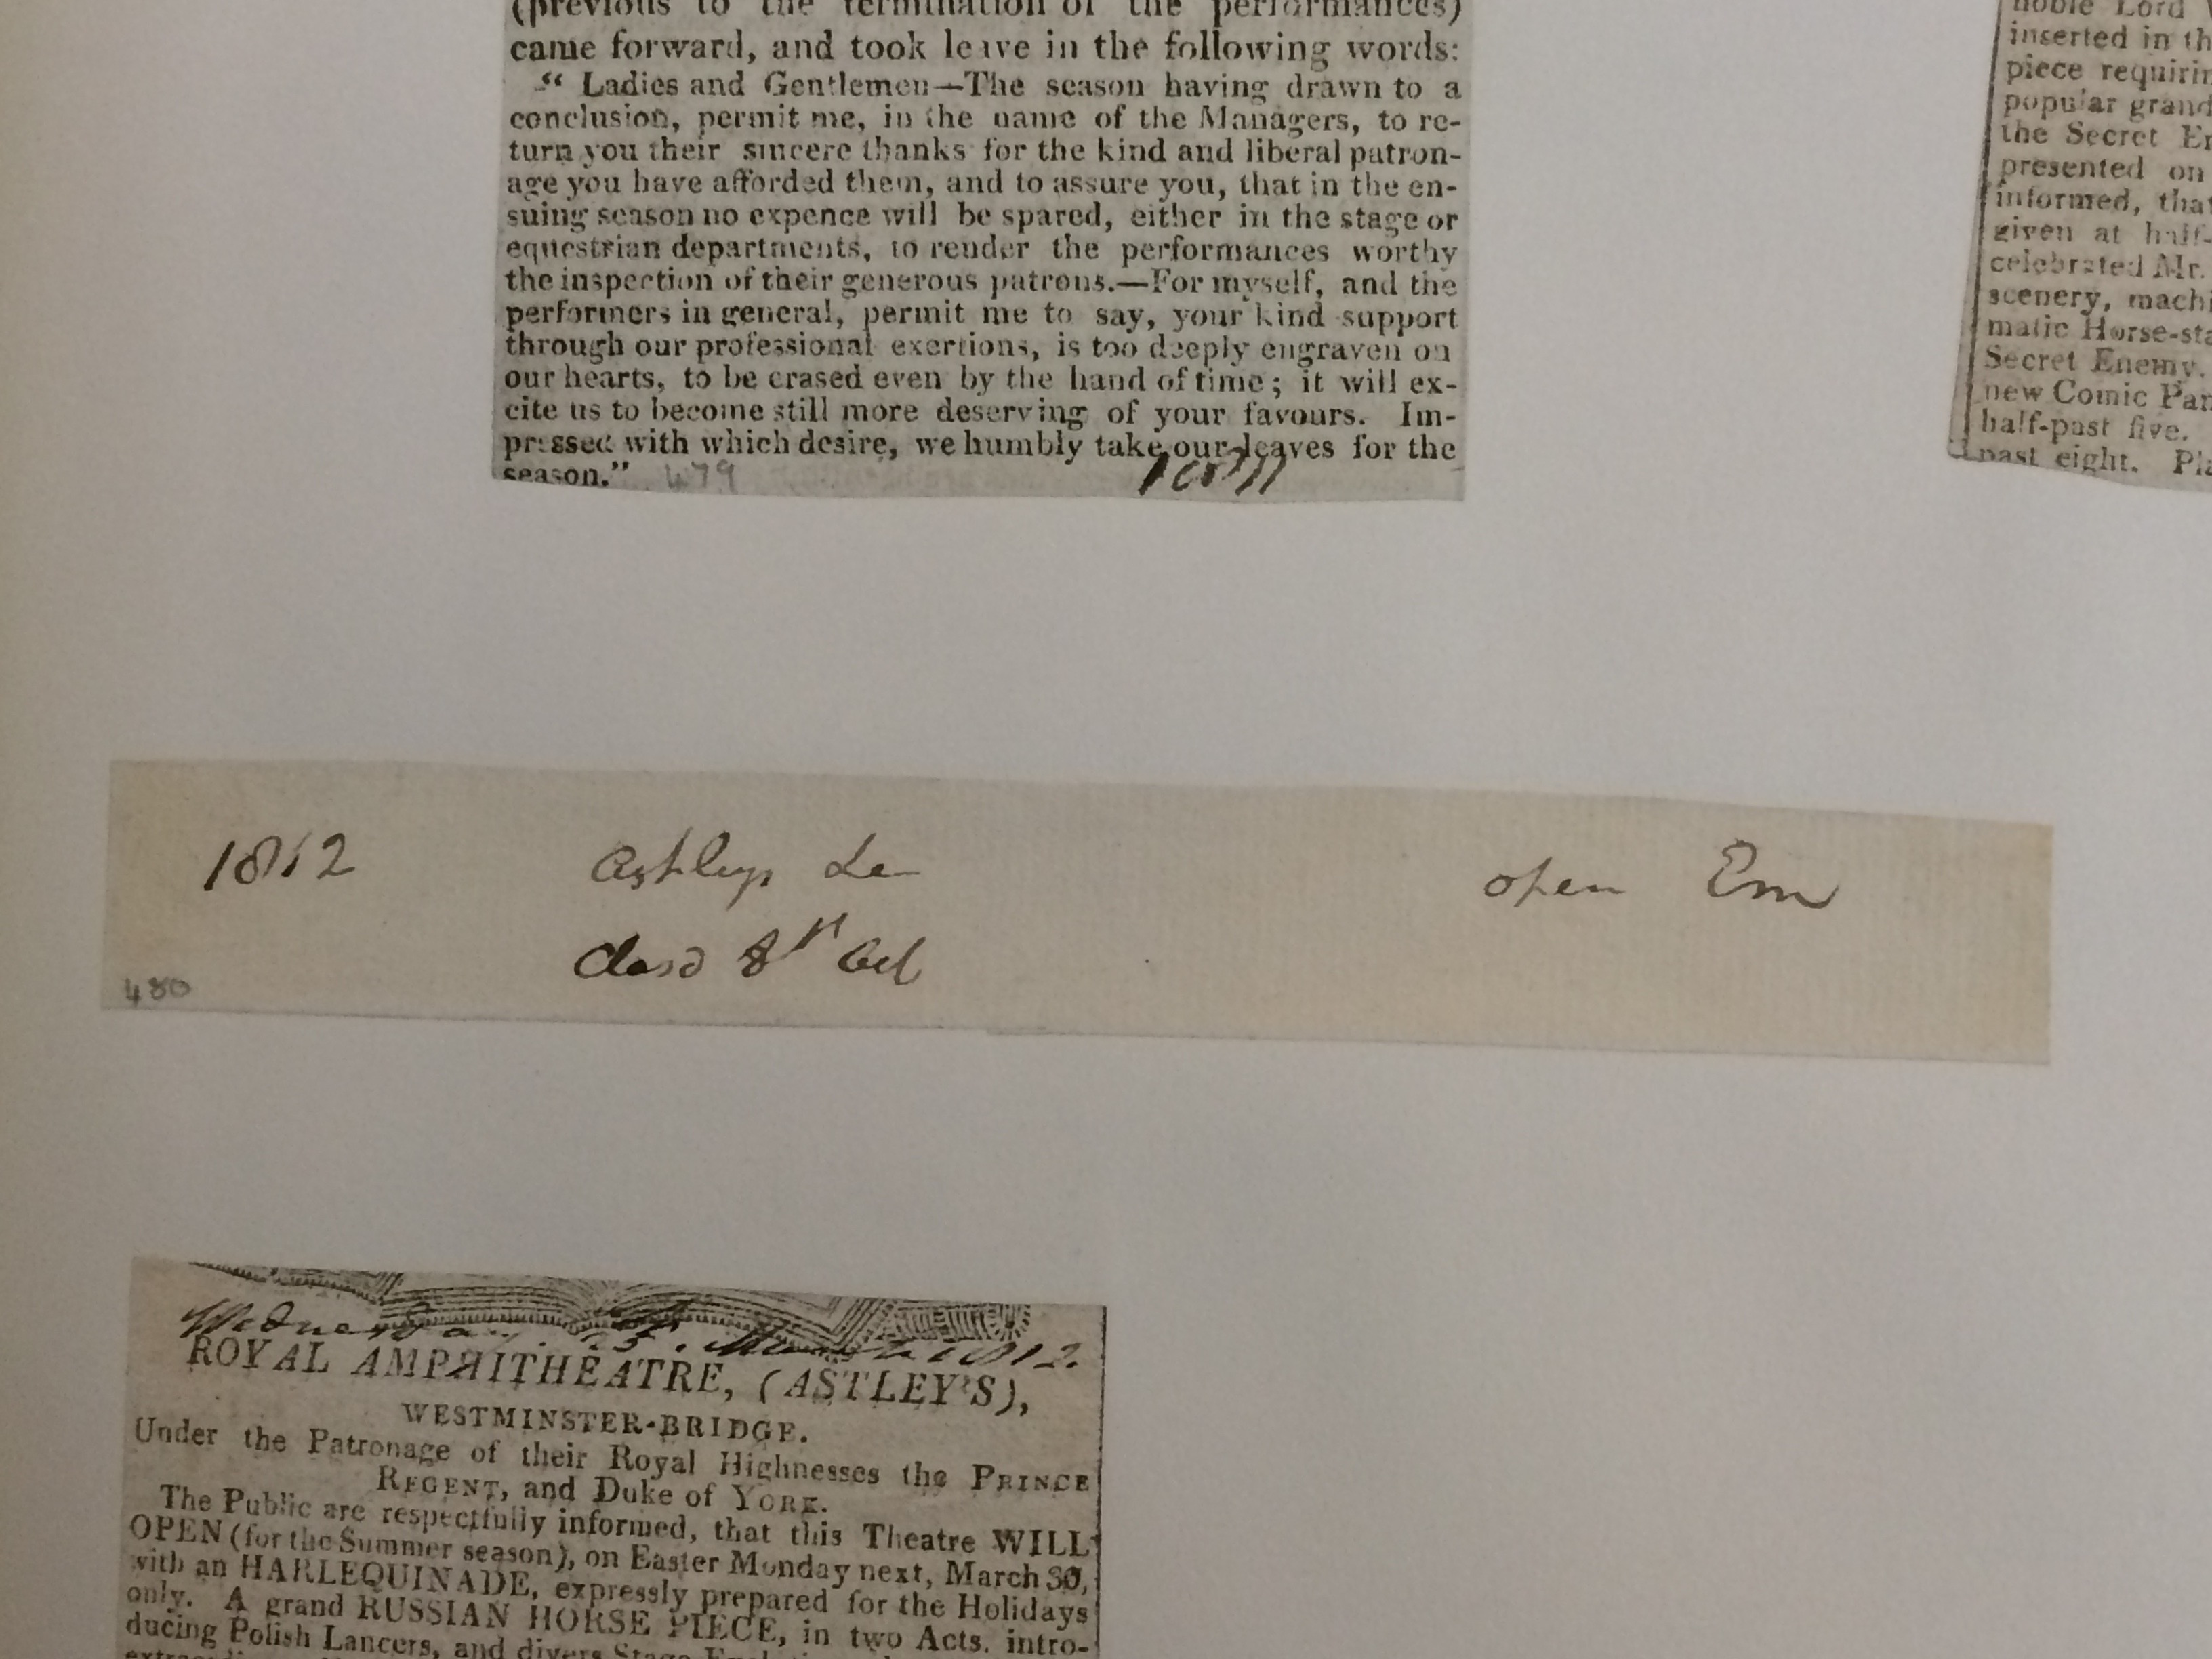 (previous to the termination of the performances)
came forward, and took leave in the following words:
“ Ladies and Gentlemen—The season having drawn to a
conclusion, permit me, in the name of the Managers, to re-
turn you their sincere thanks for the kind and liberal patron-
age you have afforded them, and to assure you, that in the en-
suing season no expence will be spared, either in the stage or
equestrian departments, to render the performances worthy
the inspection of their generous patrons.—For myself, and the
performers in general, permit me to say, your kind support
through our professional exertions, is too deeply engraven on
our hearts, to be erased even by the hand of time; it will ex-
cite us to become still more deserving of your favours. Im-
pressed with which desire, we humbly take our leaves for the
season.” 479 1811
noble Lord
inserted in
piece
popular
the Secret
presented on
informed,
given at
celebrated Mr.
scenery,
matic
Secret Enemy.
new Comic
half-past five.
past eight.
1812 Astleys Le open Em
closd 8th Oct
480
Wednesday 25 1812.
ROYAL AMPHITHEATRE, (ASTLEY'S),
WESTMINSTER-BRIDGE.
Under the Patronage of their Royal Highnesses the PRINCE
REGENT, and Duke of YORK.
The Public are respectfully informed, that this Theatre WILL
OPEN (for the Summer season), on Easter Monday next, March 30,
with an HARLEQUINADE, expressly prepared for the Holidays
only. A grand RUSSIAN HORSE PIECE, in two Acts. intro-
ducing Polish Lancers, and divers Stage